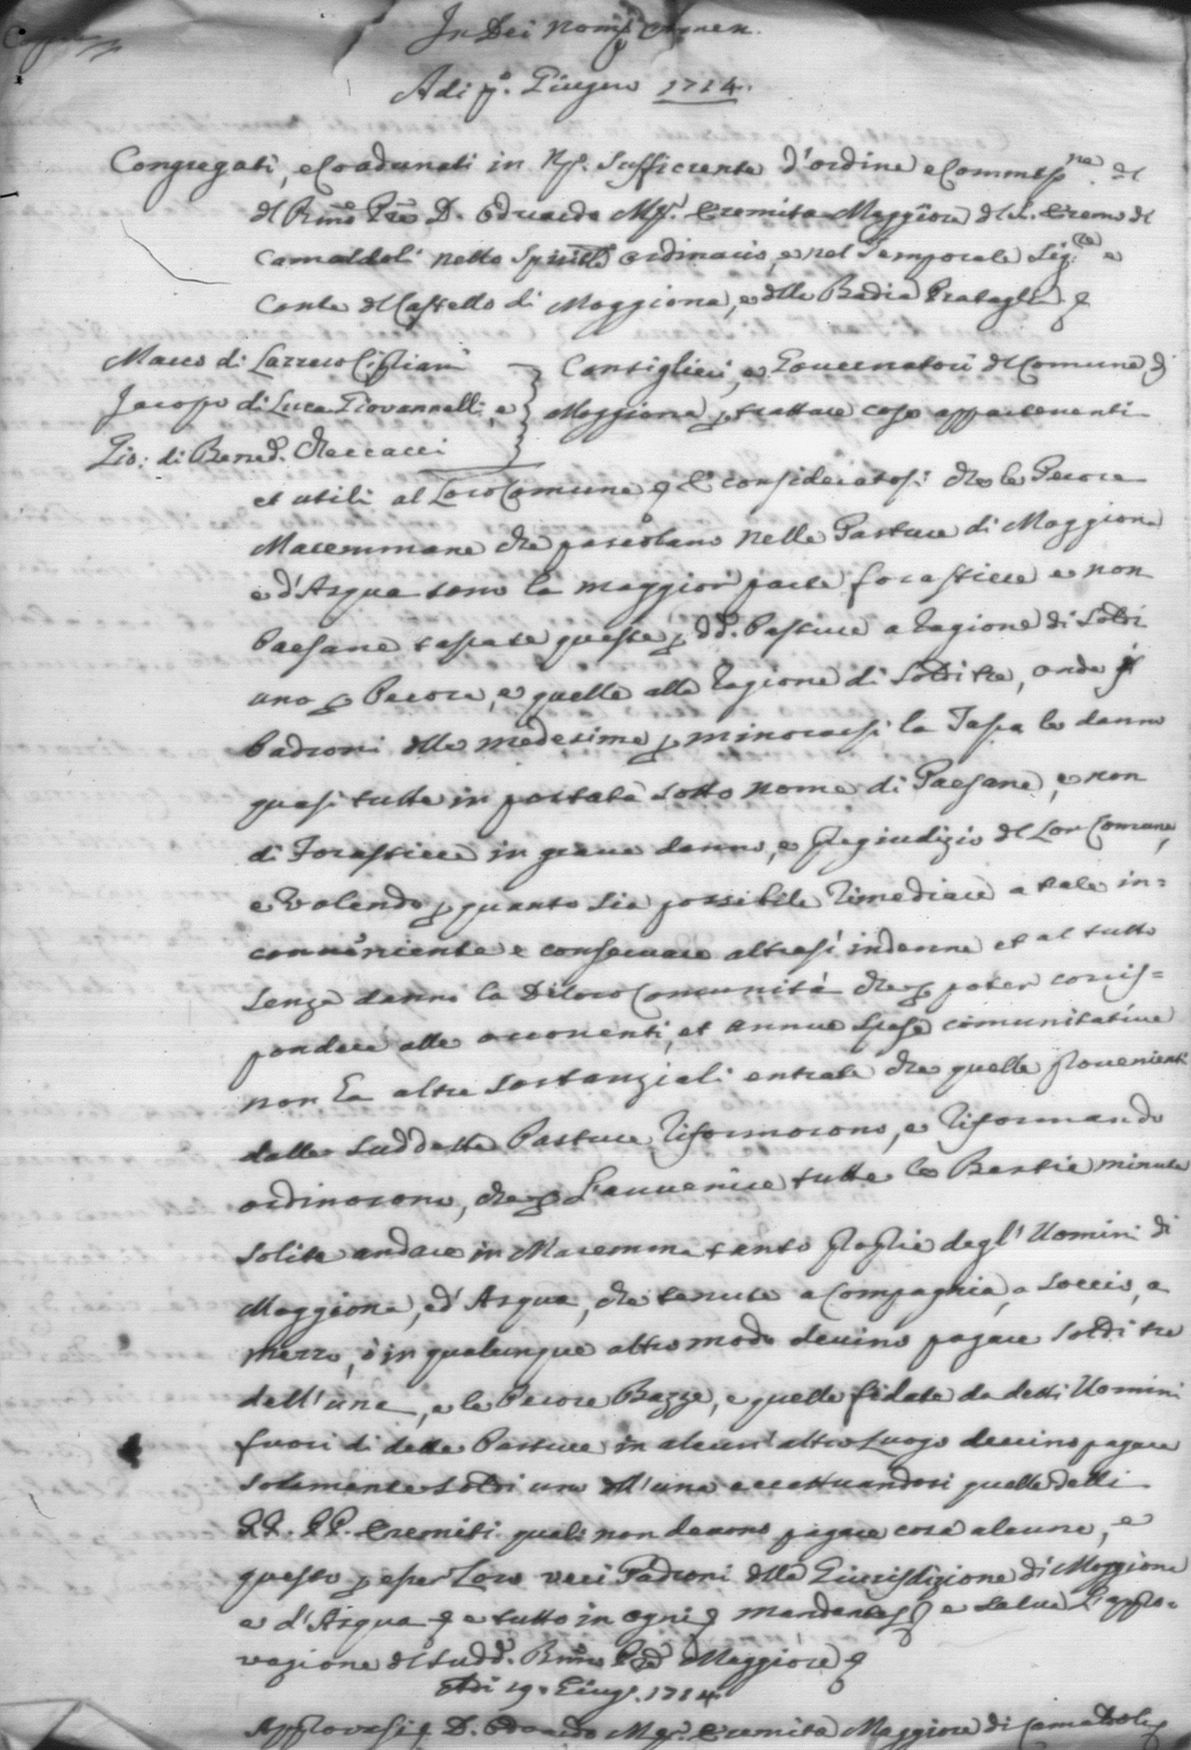 In Dei Nom.e Amen.
Adi p.o Giugno 1714.
Congregati, e Coadunati in N.o Sufficiente d'ordine e Commiss.ne del
del R.mo P.re D. Eduardo M.a Eremita Maggiore del S. Eremo di
Camaldoli nello Spirit.le ordinario, e nel Temporale Sig.re e
Conte del Castello di Moggiona, e della Badia Prataglia &
Marco di Lazzero Cipriani
Jacopo di Luca Giovannelli, e
Gio: di Bened.o Checcacci
Consiglieri, e Governatori del Comune di
Moggiona p. trattare cose appartenenti
et utili al Loro Comune & E consideratosi che le Pecore
Maremmane che pascolano nelle Pasture di Moggiona
e d'Asqua sono la maggior parte forastiere e non
Paesane tassate queste p. dd.e Pasture a ragione di Soldi
uno p. Pecora, e quelle alla ragione di Soldi tre, onde gl
Padroni delle medesime p. minorarsi la Tassa le danno
quasi tutte in portata sotto nome di Paesane, e non
di Forastiere in grave danno, e pregiudizio del Lor Comune,
e Volendo p. quanto sia possibile rimediare a tale in=
conveniente e conservare altresì indenne et al tutto
senza danno la Di loro Comunità che p. poter corris=
pondere alle occorrenti, et annue spese comunitative
non ha altre sostanziali entrate che quelle provenienti
dalle suddette Pasture riformorono, e riformando
ordinorono, che p. L'avvenire tutte le Bestie minute
solite andare in Maremma tanto proprie degl' Uomini di
Moggiona, ed' Asqua, che tenute a Compagnia, a soccio, a
mezzo, ò in qualunque altro modo devino pagare soldi tre
dell'una, e le Pecore Bazze, e quelle fidate da detti Uomini
fuori di dette Pasture in alcun' altro Luogo devino pagare
solamente soldi uno dell'una eccettuandosi quelle delli
RR. PP. Eremiti quali non devono pagare cosa alcuna, e
questo p. esser Loro veri Padroni della Giurisdizione di Moggiona
e d'Asqua & e tutto in ogni & mandantes & e salva L'appro=
vazione del sudd.o R.mo P.re Maggiore &
Adi 19. Giug.o 1714
Approvasi p. D. Edoardo M.a Eremita Maggiore di Camaldoli